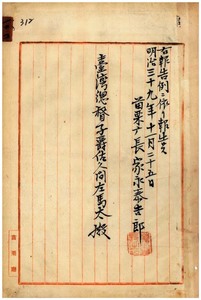 312
右報告例ニ依リ報告ス
明治三十九年十一月二十五日
苗栗廳長家永泰吉郎
臺灣總督子爵佐久間左馬太殿
苗栗廳